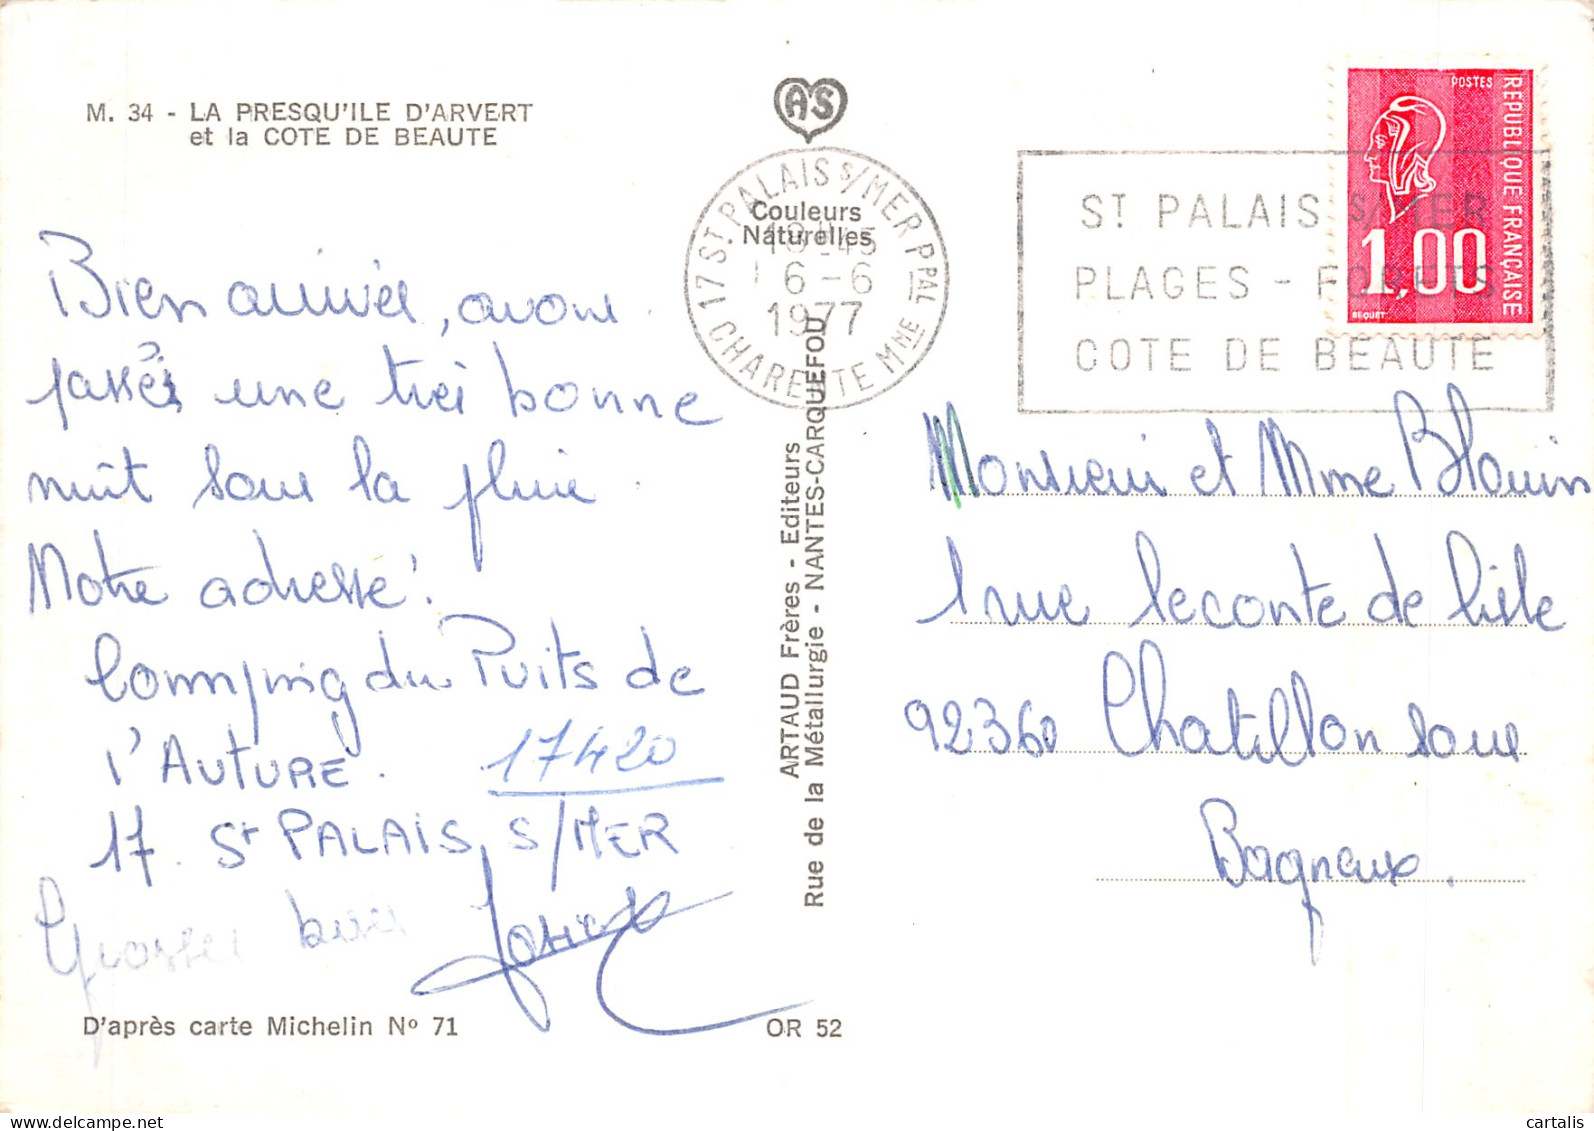 M. 34 - LA PRESQU'ILE D'ARVERT
et la COTE DE BEAUTE
Bien arrivés, avons
passés une très bonne
nuit sous la pluie.
Notre adresse :
Camping du Puits de
l'AUTURE. 17420
17. St PALAIS S/MER
Grosses bises
D'après carte Michelin No 71
OR 52
AS
Couleurs
Naturelles
17 ST PALAIS S/MER PPAL
18H45
6-6
1977
CHARENTE MME
ARTAUD Frères - Editeurs
Rue de la Métallurgie - NANTES-CARQUEFOU
ST PALAIS S/MER
PLAGES - FORETS
COTE DE BEAUTE
POSTES
REPUBLIQUE FRANÇAISE
1,00
BEQUET
Monsieur et Mme Blouin
1 rue Leconte de lisle
92360 Chatillon sous
Bagneux.
cartalis